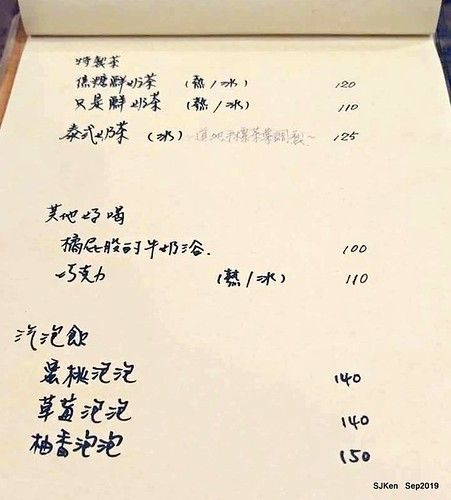 特製茶
焦糖鮮奶茶 (熱/冰) 120
只是鮮奶茶 (熱/冰) 110
泰式奶茶 (冰) 125
其他好喝
橘屁股的牛奶浴. 100
巧克力 (熱/冰) 110
汽泡飲
蜜桃泡泡 140
草莓泡泡 140
柚香泡泡 150
SJKen Sep2019